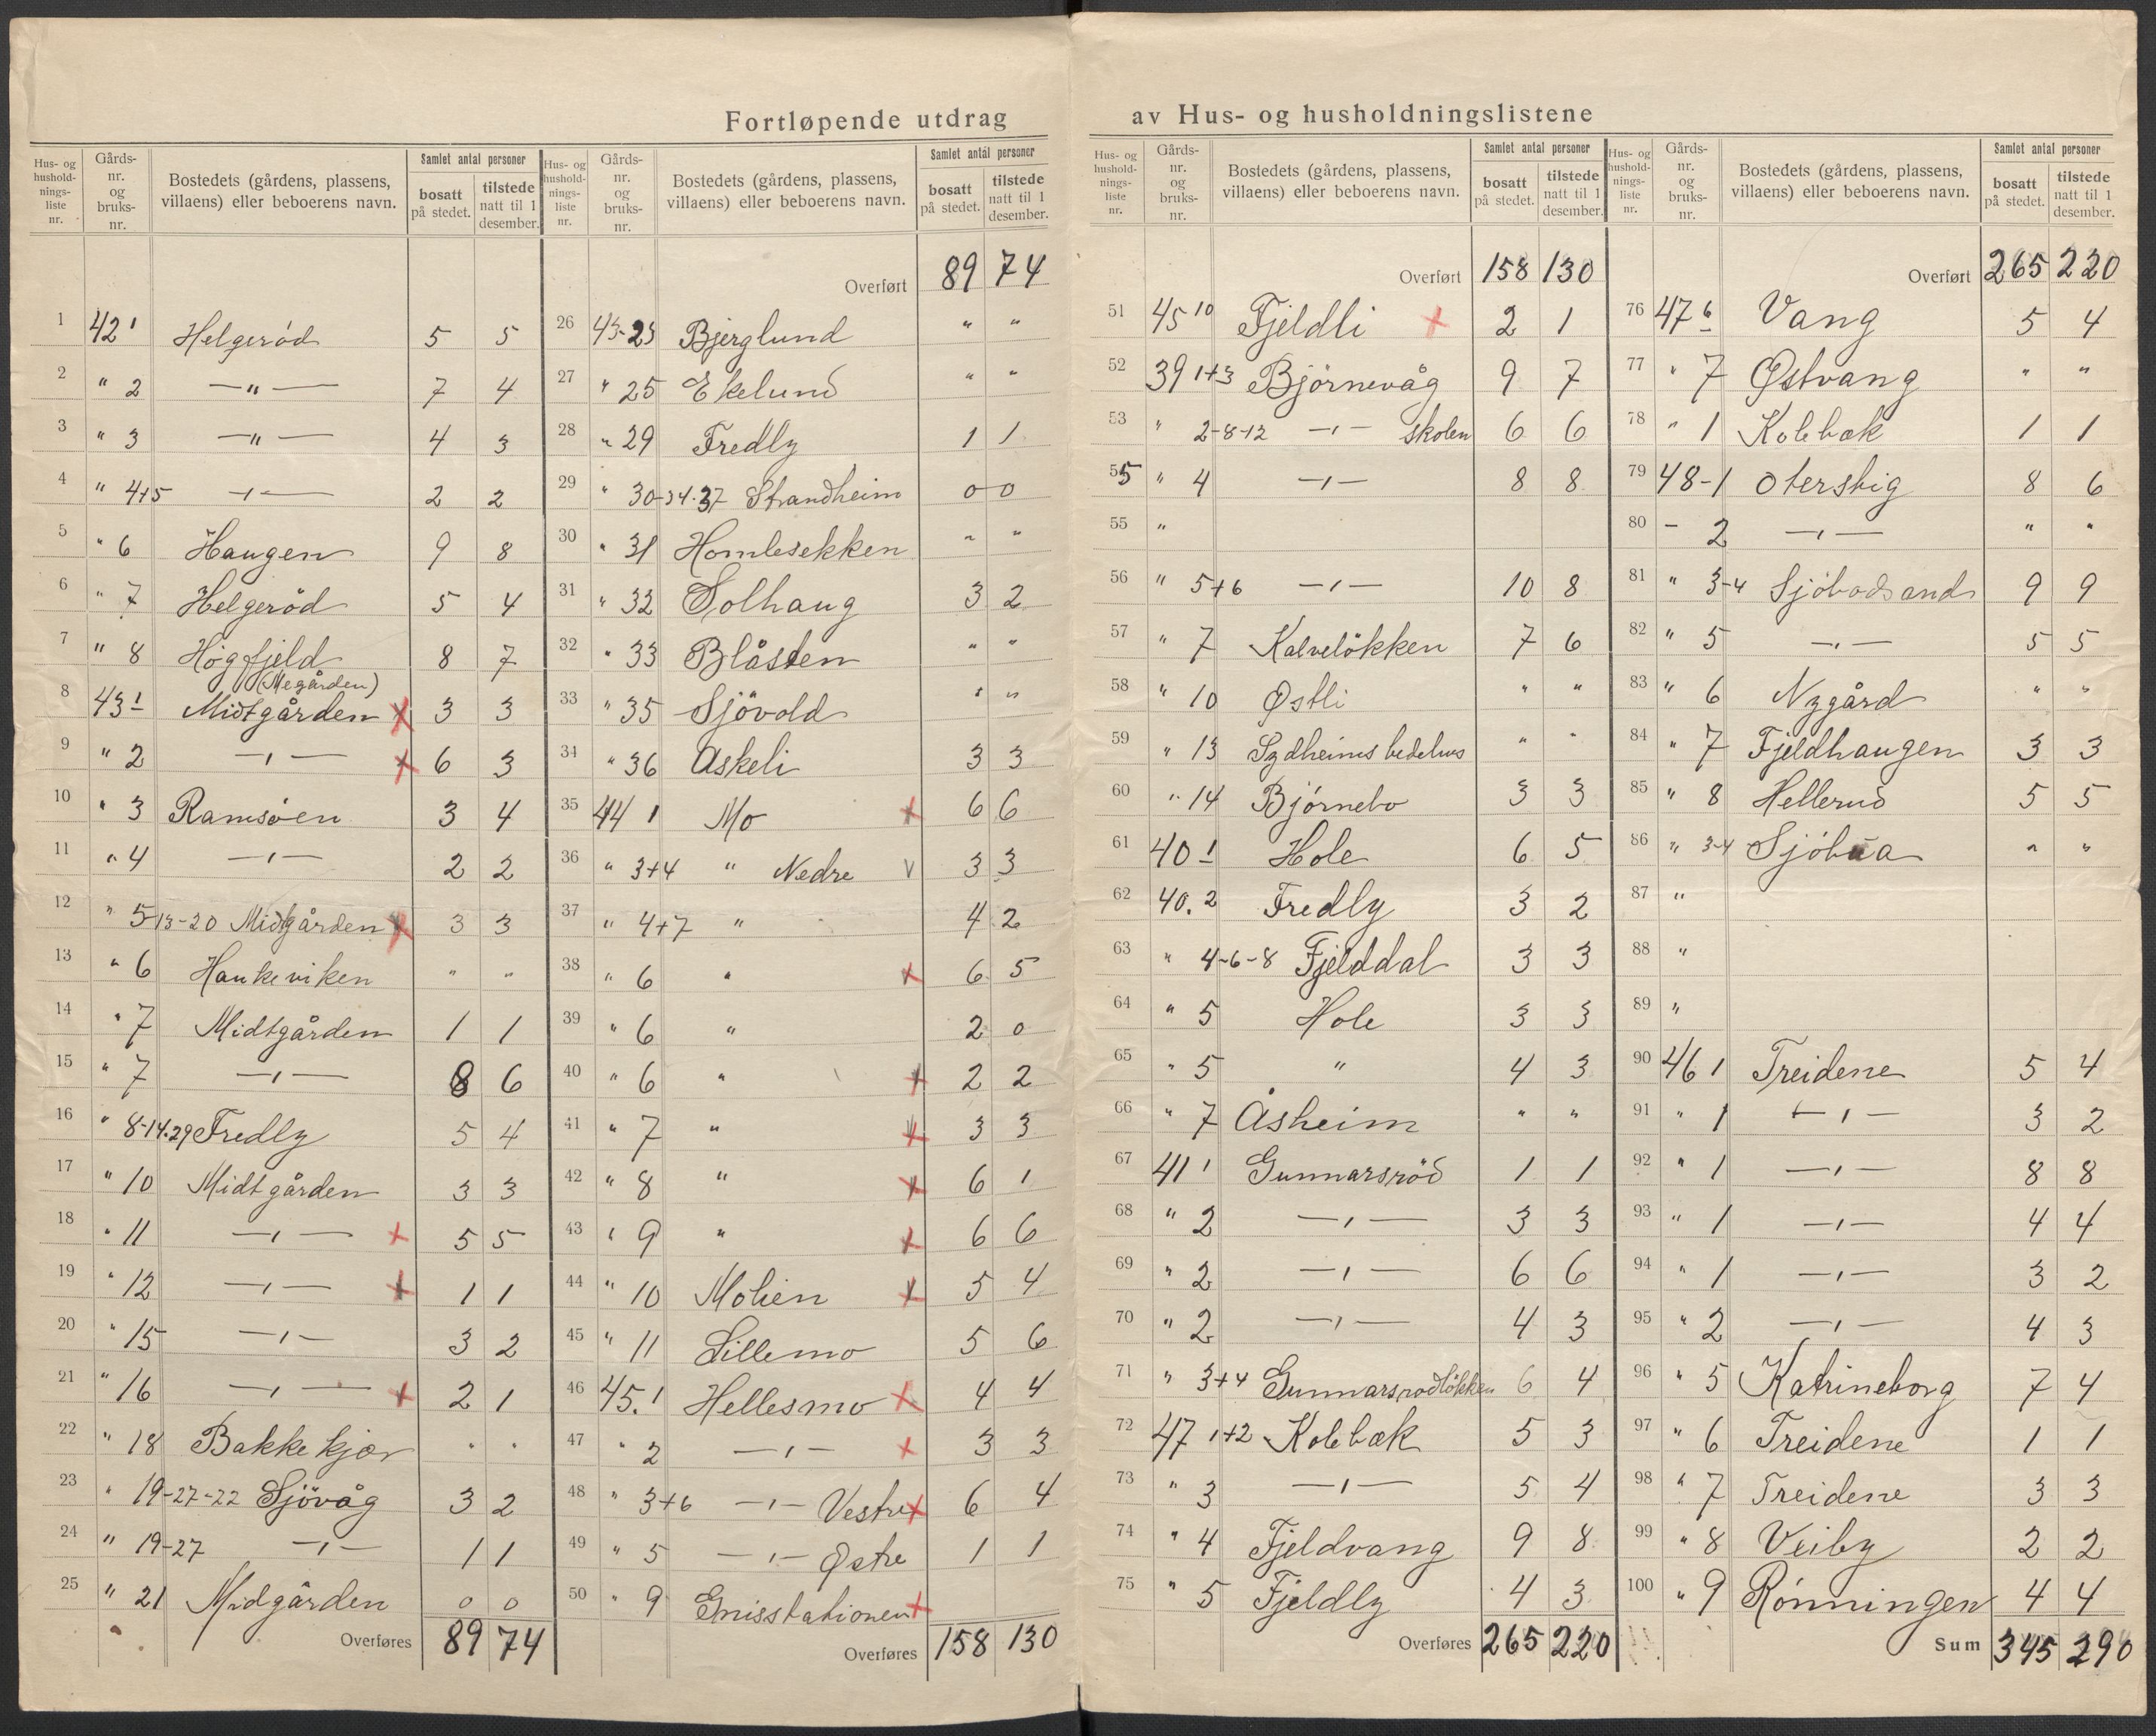 Fortløpende utdrag av Hus- og husholdningslistene
Hus- og hushold- nings- liste nr. | Gårds- nr. og bruks- nr. | Bostedets (gårdens, plassens, villaens) eller beboerens navn. | Samlet antal personer | bosatt på stedet. | tilstede natt til 1 desember.
1 42 1 Helgerød 5 5
2 " 2 —"— 7 4
3 " 3 —"— 4 3
4 " 4+5 —"— 2 2
5 " 6 Haugen 9 8
6 " 7 Helgerød 5 4
7 " 8 Høgfjeld 8 7
(Megården)
8 43 1 Midtgården x 3 3
9 " 2 —"— x 6 3
10 " 3 Ramsøen 3 4
11 " 4 —"— 2 2
12 " 5-13-20 Midtgården x 3 3
13 " 6 Hankeviken " "
14 " 7 Midtgården 1 1
15 " 7 —"— 8 6
16 " 8-14.29 Fredly 5 4
17 " 10 Midtgården 3 3
18 " 11 —"— x 5 5
19 " 12 —"— x 1 1
20 " 15 —"— 3 2
21 " 16 —"— x 2 1
22 " 18 Bakkekjær " "
23 " 19-27-22 Sjövåg 3 2
24 " 19-27 —"— 1 1
25 " 21 Midgården 0 0
Overføres 89 74
Hus- og hushold- nings- liste nr. | Gårds- nr. og bruks- nr. | Bostedets (gårdens, plassens, villaens) eller beboerens navn. | Samlet antal personer | bosatt på stedet. | tilstede natt til 1 desember.
Overført 89 74
26 43-23 Bjerglund " "
27 " 25 Ekelund " "
28 " 29 Fredly 1 1
29 " 30-34.37 Strandheim 0 0
30 " 31 Homlesekken " "
31 " 32 Solhaug 3 2
32 " 33 Blåsten " "
33 " 35 Sjövold " "
34 " 36 Askeli 3 3
35 44 1 Mo x 6 6
36 " 3+4 " Nedre v 3 3
37 " 4+7 " 4 2
38 " 6 " x 6 5
39 " 6 " 2 0
40 " 6 " x 2 2
41 " 7 " x 3 3
42 " 8 " x 6 1
43 " 9 " x 6 6
44 " 10 Molien x 5 4
45 " 11 Lillemo 5 6
46 45.1 Hellesmo x 4 4
47 " 2 —"— x 3 3
48 " 3+6 —"— Vestre x 6 4
49 " 5 —"— Østre 1 1
50 " 9 Gnisstationen x
Overføres 158 130
Hus- og hushold- nings- liste nr. | Gårds- nr. og bruks- nr. | Bostedets (gårdens, plassens, villaens) eller beboerens navn. | Samlet antal personer | bosatt på stedet. | tilstede natt til 1 desember.
Overført 158 130
51 45 10 Fjeldli x 2 1
52 39 1+3 Björnevåg 9 7
53 " 2-8-12 —"— skolen 6 6
55 " 4 —"— 8 8
55 "
56 " 5+6 —"— 10 8
57 " 7 Kalvelökken 7 6
58 " 10 Østli " "
59 " 13 Sydheims bedehus " "
60 " 14 Björnebo 3 3
61 40 1 Hole 6 5
62 40.2 Fredly 3 2
63 " 4-6-8 Fjelddal 3 3
64 " 5 Hole 3 3
65 " 5 " 4 3
66 " 7 Åsheim " "
67 41 1 Gunnarsröd 1 1
68 " 2 —"— 3 3
69 " 2 —"— 6 6
70 " 2 —"— 4 3
71 " 3+4 Gunnarsrodlökken 6 4
72 47 1+2 Kolebæk 5 3
73 " 3 —"— 5 4
74 " 4 Fjeldvang 9 8
75 " 5 Fjeldly 4 3
Overføres 265 220
Hus- og hushold- nings- liste nr. | Gårds- nr. og bruks- nr. | Bostedets (gårdens, plassens, villaens) eller beboerens navn. | Samlet antal personer | bosatt på stedet. | tilstede natt til 1 desember.
Overført 265 220
76 47 6 Vang 5 4
77 " 7 Østvang " "
78 " 1 Kolebæk 1 1
79 48-1 Oterstig 8 6
80 - 2 —"— " "
81 " 3-4 Sjöbodsand 9 9
82 " 5 —"— 5 5
83 " 6 Nygård " "
84 " 7 Fjeldhaugen 3 3
85 " 8 Hellerud 5 5
86 " 3-4 Sjöbua " "
87 "
88 "
89 "
90 46 1 Treidene 5 4
91 " 1 —"— 3 2
92 " 1 —"— 8 8
93 " 1 —"— 4 4
94 " 1 —"— 3 2
95 " 2 —"— 4 3
96 " 5 Katrineborg 7 4
97 " 6 Treidene 1 1
98 " 7 Treidene 3 3
99 " 8 Veiby 2 2
100 " 9 Rönningen 4 4
Sum 345 290